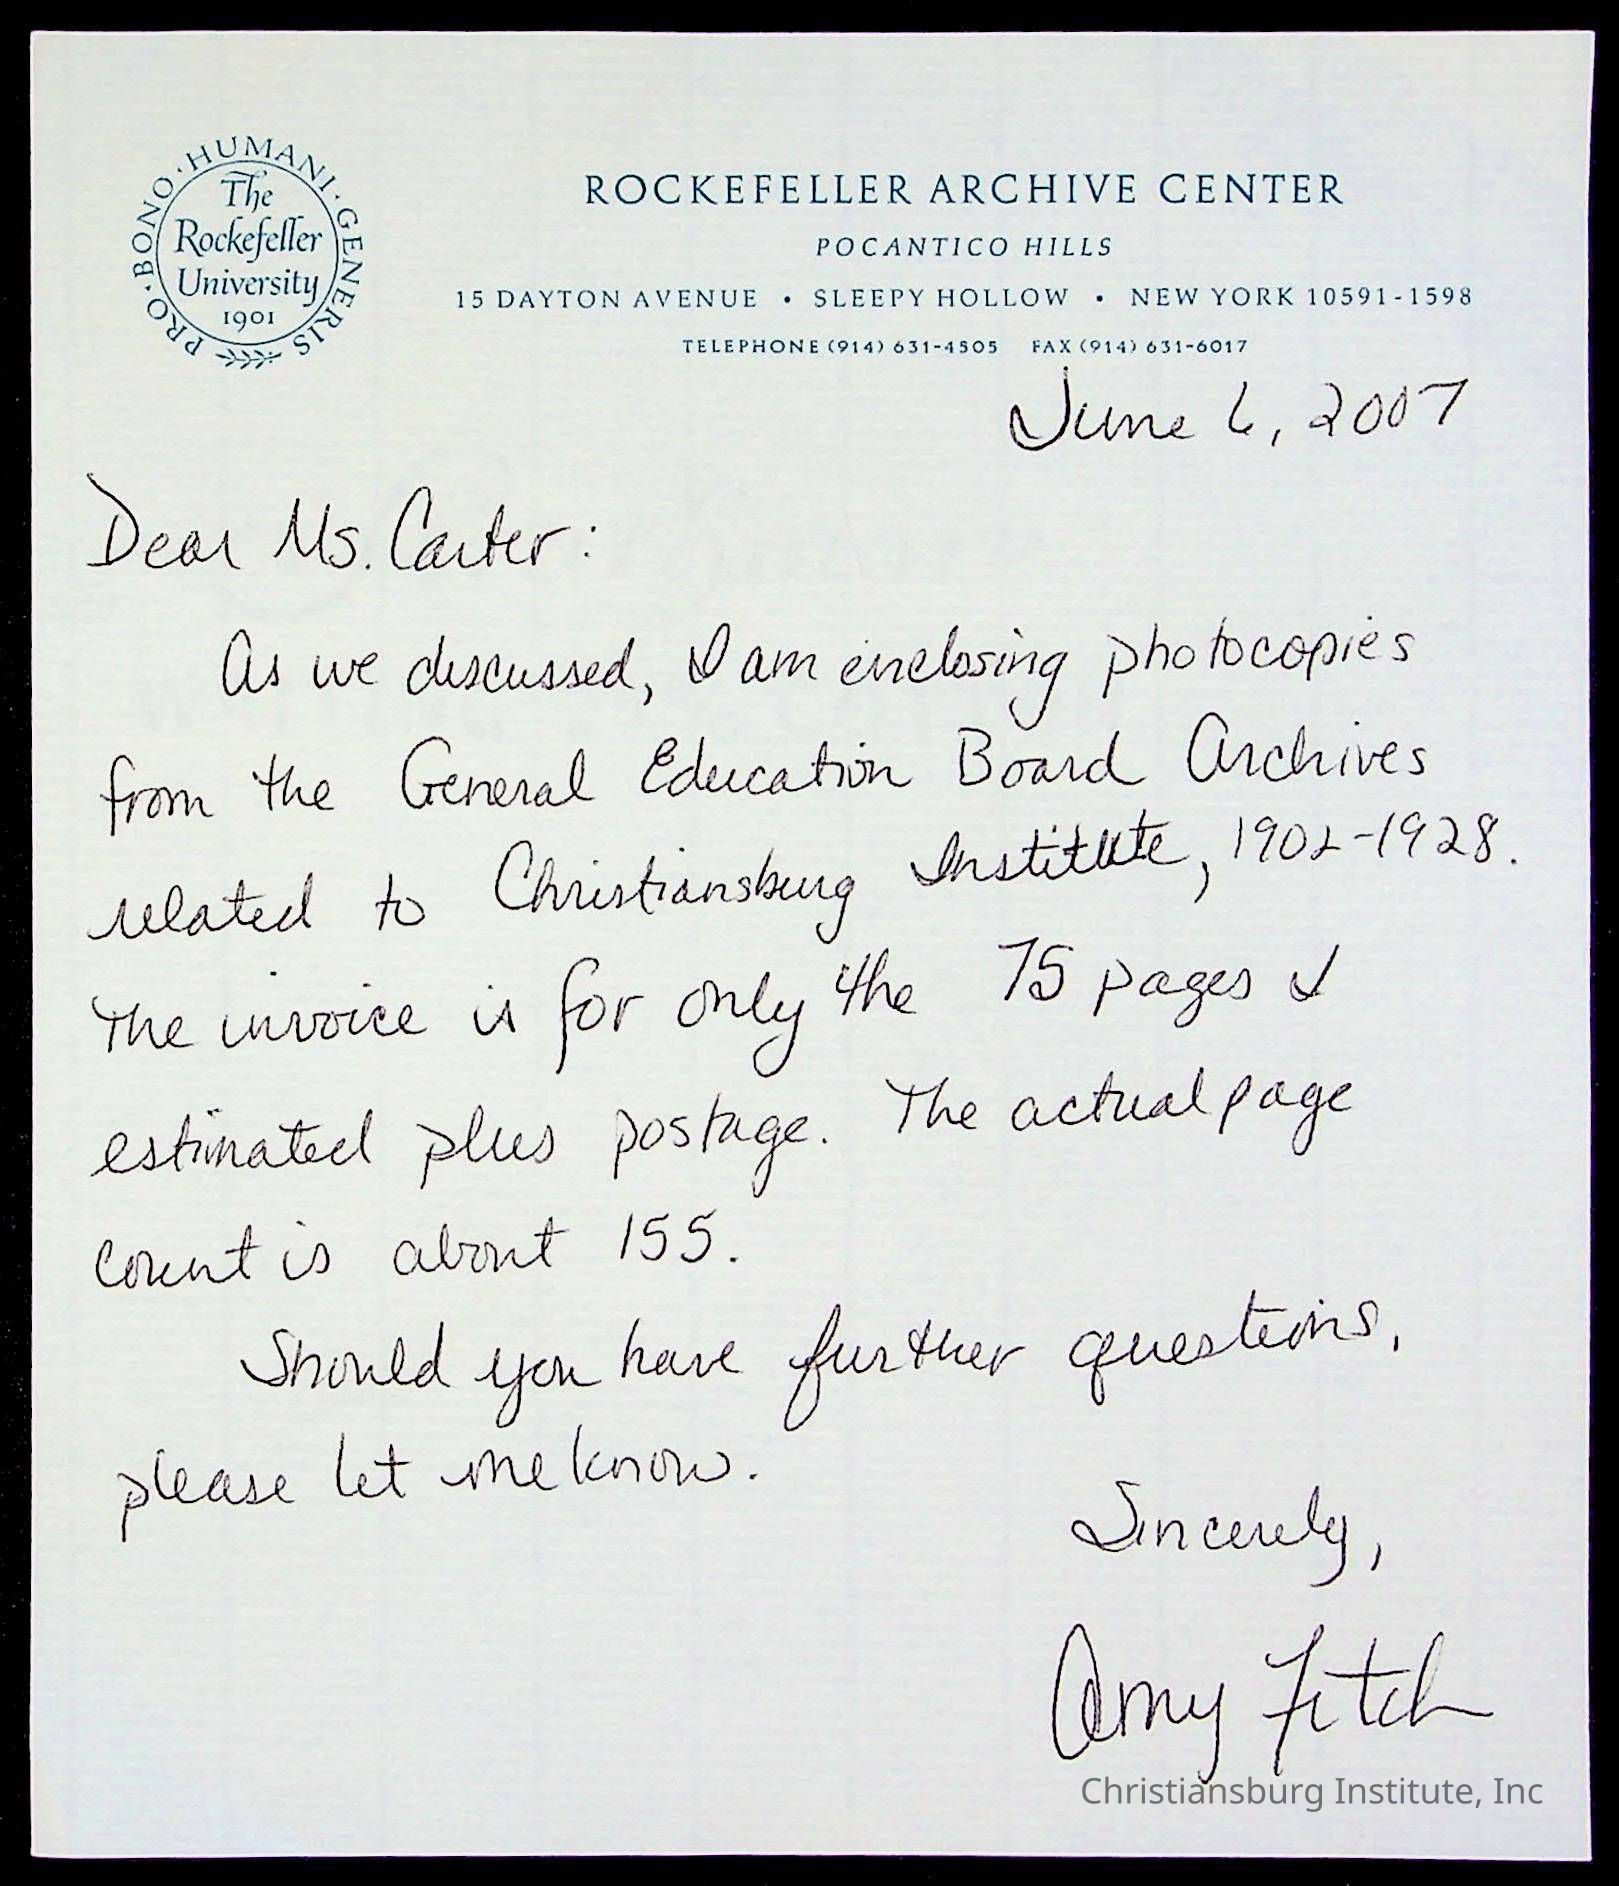 PRO · BONO · HUMANI · GENERIS
The
Rockefeller
University
1901
ROCKEFELLER ARCHIVE CENTER
POCANTICO HILLS
15 DAYTON AVENUE • SLEEPY HOLLOW • NEW YORK 10591-1598
TELEPHONE (914) 631-4505 FAX (914) 631-6017
June 6, 2007
Dear Ms. Carter:
As we discussed, I am enclosing photocopies
from the General Education Board Archives
related to Christiansburg Institute, 1902-1928.
The invoice is for only the 75 pages I
estimated plus postage. The actual page
count is about 155.
Should you have further questions,
please let me know.
Sincerely,
Amy Fitch
Christiansburg Institute, Inc